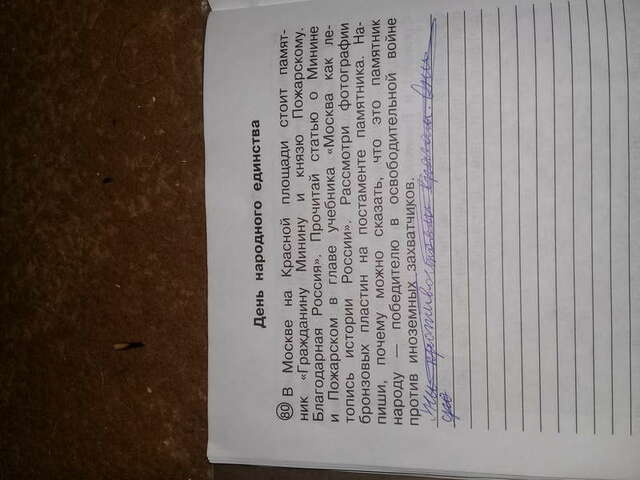 День народного единства
80 В Москве на Красной площади стоит памят-
ник «Гражданину Минину и князю Пожарскому.
Благодарная Россия». Прочитай статью о Минине
и Пожарском в главе учебника «Москва как ле-
топись истории России». Рассмотри фотографии
бронзовых пластин на постаменте памятника. На-
пиши, почему можно сказать, что это памятник
народу — победителю в освободительной войне
против иноземных захватчиков.
противостояли врагам. Они